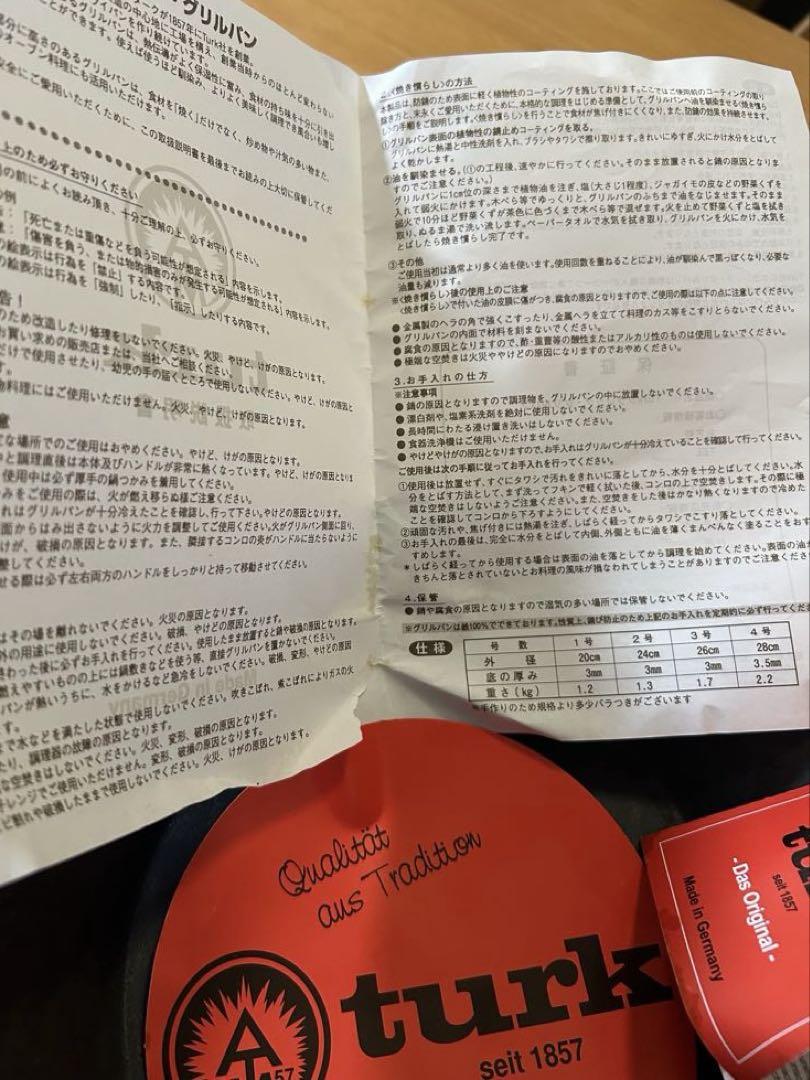 グリルパン
ークが1857年にTurk社を創業。
の中心地に工場を構え、創業当時からのほとんど変わらない
パンを作り続けています。
るグリルパンは、熱伝導がよく保温性に富み、食材の持ち味を十分に引き出
ことができます。使えば使うほど馴染み、よりよく美味しく調理でき風合いも増し
部分に高さのあるグリルパンは、食材を「焼く」だけでなく、炒め物や汁気の多い物、また、
オーブン料理にも活用いただけます。
安全にご愛用いただくために、この取扱説明書を最後までお読みの上大切に保管してくだ
上のため必ずお守りください
の前によくお読み頂き、十分ご理解の上、必ずお守りください。
の例
：「死亡または重傷などを負う可能性が想定される」内容を示します。
：「傷害を負う、または物的損害のみが発生する可能性が想定される」内容を示します。
の絵表示は行為を「禁止」する内容です。
の絵表示は行為を「強制」したり、「指示」したりする内容です。
告！
のため改造したり修理をしないでください。火災、やけど、けがの原因となります。
お買い求めの販売店または、当社へご相談ください。
だけで使用させたり、幼児の手の届くところで使用しないでください。やけど、けがの原因と
物料理にはご使用いただけません。火災、やけど、けがの原因となります。
意
な場所でのご使用はおやめください。やけど、けがの原因となります。
中と調理直後は本体及びハンドルが非常に熱くなっています。やけど、けがの原因となりま
使用中は必ず厚手の鍋つかみを着用してください。
みをご使用の際は、火が燃え移らぬ様ご注意ください。
れはグリルパンが十分冷えたことを確認し、行って下さい。やけどの原因となります。
面からはみ出さないように火力を調整してご使用ください。火がグリルパン側面に回り、
けが、破損の原因となります。また、隣接するコンロの炎がハンドルに当たらないように
整してください。
せる際は必ず左右両方のハンドルをしっかりと持って移動させてください。
はその場を離れないでください。火災の原因となります。
外の用途に使用しないでください。破損、やけどの原因となります。
さわった後に必ずお手入れを行ってください。使用したまま放置すると錆や破損の原因となります。
燃えやすいものの上には鍋敷きなどを使う等、直接グリルパンを置かないでください。
パンが熱いうちに、水をかけるなど急冷をしないでください。破損、変形、やけどの原因
す。
まで水などを満たした状態で使用しないでください。吹きこぼれ、煮こぼれによりガスの火
たり、調理器の故障の原因となります。
な空焚きはしないでください。火災、変形、破損の原因となります。
レンジでご使用いただけません。変形、破損の原因となります。
ビ割れや破損したままで使用しないでください。火災、けがの原因となります。
2.〈焼き慣らし〉の方法
本製品は、防錆のため表面に軽く植物性のコーティングを施しております。ここではご使用前のコーティングの取り
除き方と、末永くご愛用いただくために、本格的な調理をはじめる準備として、グリルパンへ油を馴染ませる〈焼き慣ら
し〉の手順をご説明します。〈焼き慣らし〉を行うことで食材が焦げ付きにくくなり、また、防錆の効果を持続させます。
①グリルパン表面の植物性の錆止めコーティングを取る。
グリルパンに熱湯と中性洗剤を入れ、ブラシやタワシで擦り取ります。きれいにゆすぎ、火にかけ水分をとばして
よく乾かします。
②油を馴染ませる。(①の工程後、速やかに行ってください。そのまま放置されると錆の原因となりま
すのでご注意ください。)
グリルパンに1cm位の深さまで植物油を注ぎ、塩(大さじ1程度)、ジャガイモの皮などの野菜くずを
入れて弱火にかけます。木べら等でゆっくりと、グリルパンのふちまで油をなじませます。そのまま
弱火で10分ほど野菜くずが茶色に色づくまで木べら等で混ぜます。火を止めて野菜くずと塩を拭き
取り、ぬるま湯で洗い流します。ペーパータオルで水気を拭き取り、グリルパンを火にかけ、水気を
とばしたら焼き慣らし完了です。
③その他
ご使用当初は通常より多く油を使います。使用回数を重ねることにより、油が馴染んで黒っぽくなり、必要な
油量も減ります。
※〈焼き慣らし〉後の使用上のご注意
〈焼き慣らし〉で付いた油の皮膜に傷がつき、腐食の原因となりますので、ご使用の際は以下の点に注意してください。
● 金属製のヘラの角で強くこすったり、金属ヘラを立てて料理のカス等をこすりとらないでください。
● グリルパンの内面で材料を刻まないでください。
● 腐食の原因となりますので、酢・重曹等の酸性またはアルカリ性のものは使用しないでください。
● 極端な空焚きは火災ややけどの原因になりますのでおやめください。
3.お手入れの仕方
※注意事項
● 錆の原因となりますので調理物を、グリルパンの中に放置しないでください。
● 漂白剤や、塩素系洗剤を絶対に使用しないでください。
● 長時間にわたる浸け置き洗いはしないでください。
● 食器洗浄機はご使用いただけません。
● やけどやけがの原因となりますので、お手入れはグリルパンが十分冷えていることを確認して行ってください。
ご使用後は次の手順に従ってお手入れを行ってください。
①使用後は放置せず、すぐにタワシで汚れをきれいに落としてから、水分を十分とばしてください。水
分をとばす方法として、まず洗ってフキンで軽く拭いた後、コンロの上で空焚きします。その際に極
端な空焚きはしないようご注意ください。また、空焚きをした後はかなり熱くなりますので冷めた
ことを確認してコンロから下ろすようにしてください。
②頑固な汚れや、焦げ付きには熱湯を注ぎ、しばらく経ってからタワシでこすり落としてください。
③お手入れの最後は、完全に水分をとばして内側、外側ともに油を薄くまんべんなく塗ることをおす
すめします。
*しばらく経ってから使用する場合は表面の油を落としてから調理を始めてください。表面の油が
きちんと落とされていないとお料理の風味が損なわれてしまうことがありますのでご注意くださ
4.保管
● 錆や腐食の原因となりますので湿気の多い場所では保管しないでください。
※グリルパンは鉄100%でできております。性質上、錆び防止のため上記のお手入れを定期的に必ず行ってくだ
仕様
号数 1号 2号 3号 4号
外径 20cm 24cm 26cm 28cm
底の厚み 3mm 3mm 3mm 3.5mm
重さ(kg) 1.2 1.3 1.7 2.2
※手作りのため規格より多少バラつきがございます
Qualität
aus Tradition
AT
57
turk
seit 1857
tu
seit 1857
-Das Original-
Made in Germany